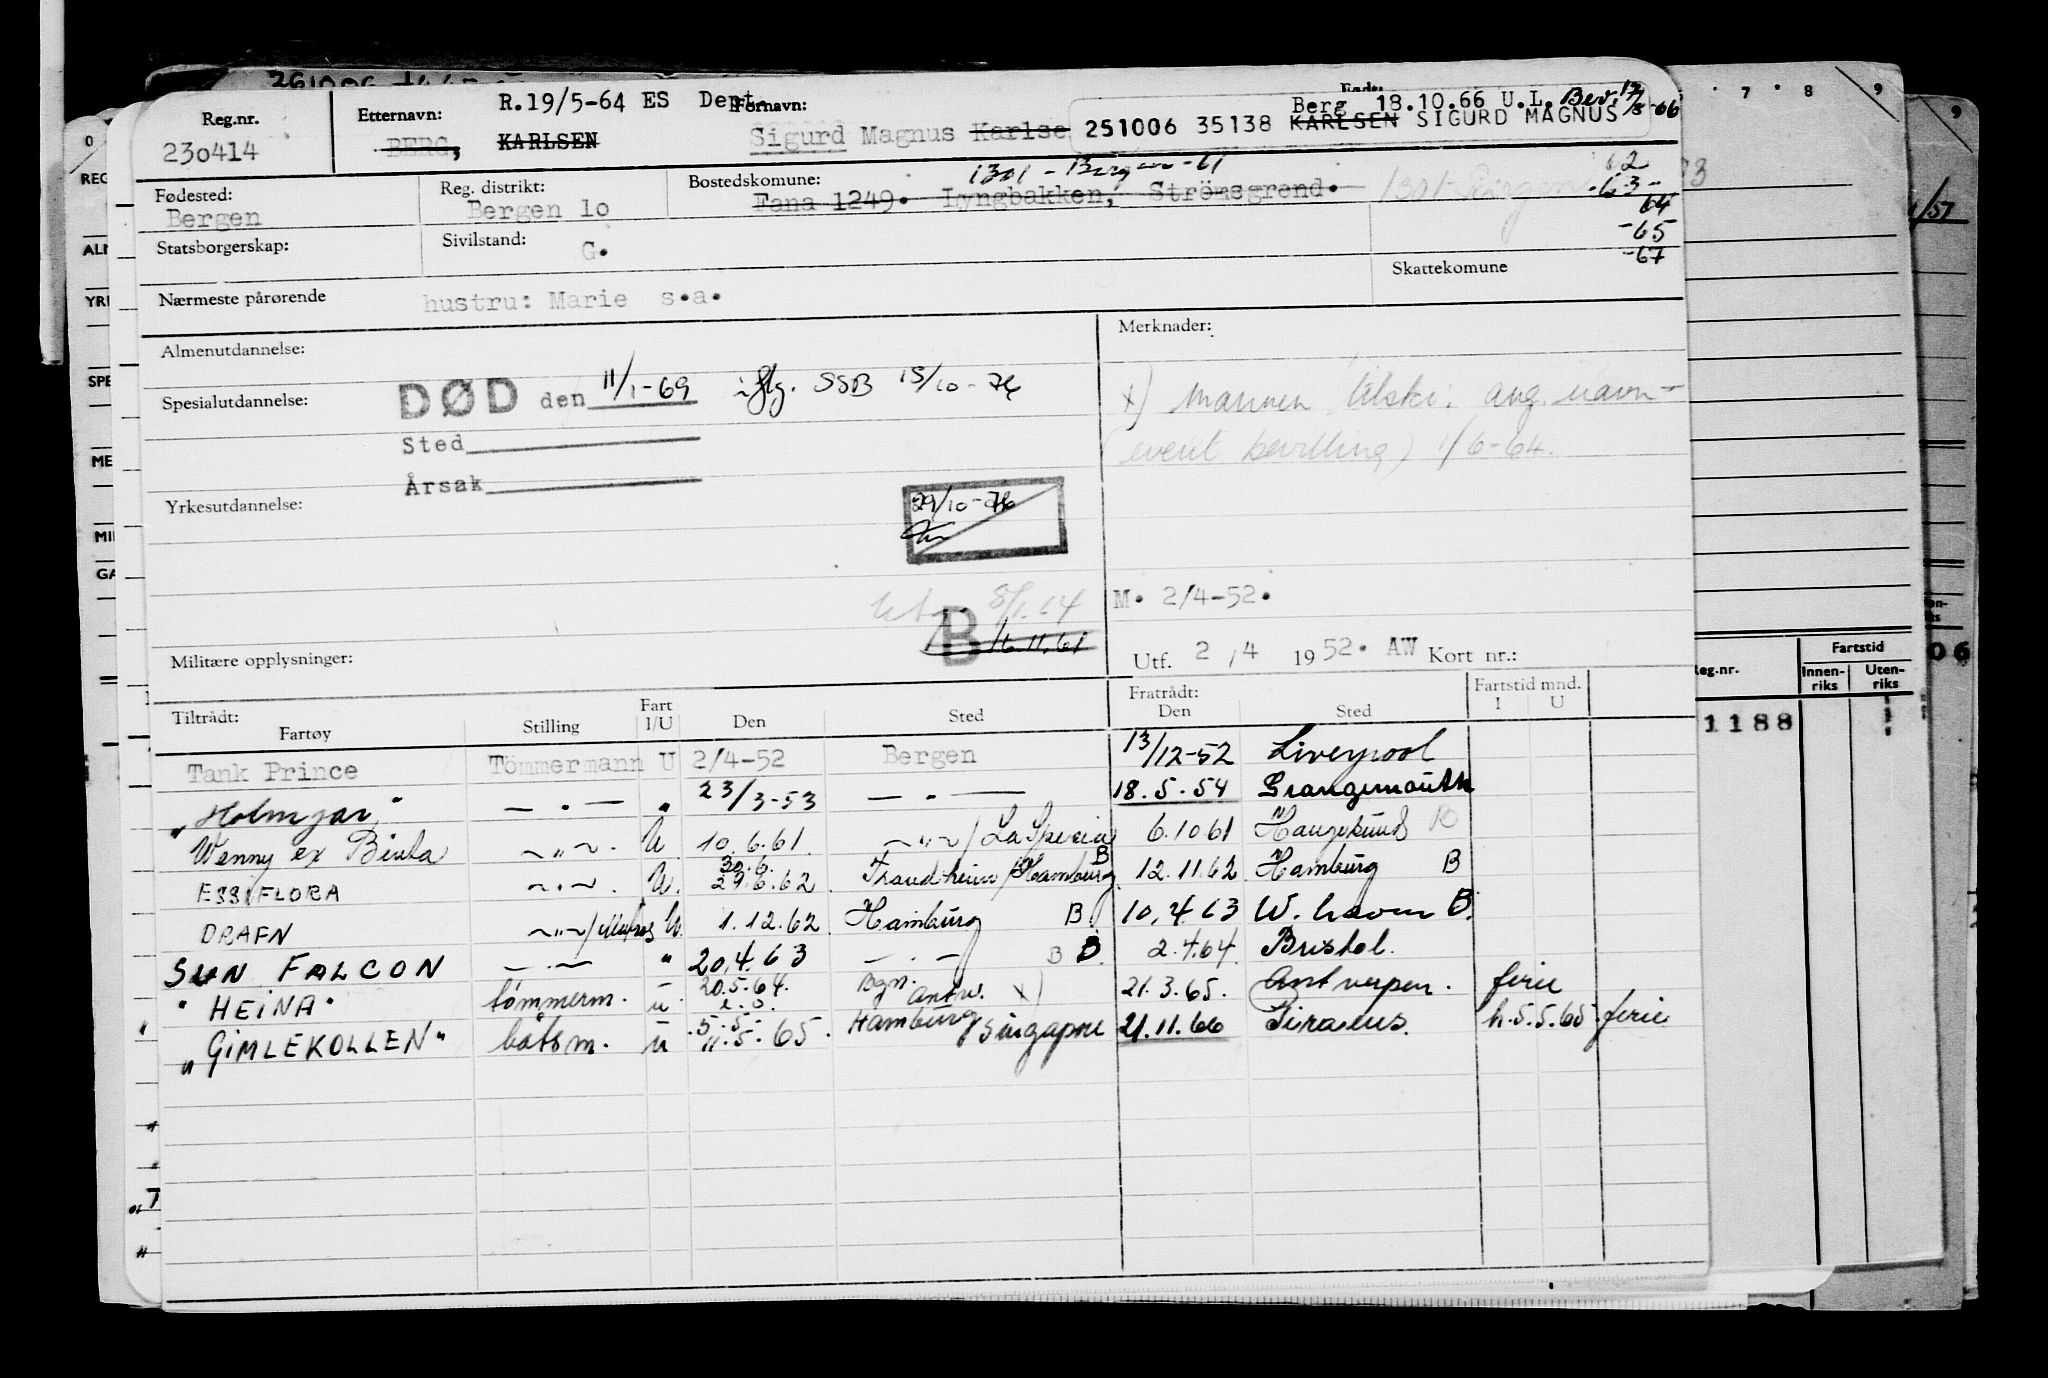 Reg.nr. Etternavn: R.19/5-64 ES Dept. Fornavn: Født:
Berg 18.10.66 U.L. Bev. 12/8-66
230414 BERG, KARLSEN Sigurd Magnus Karlse 251006 35138 KARLSEN SIGURD MAGNUS
Fødested: Reg. distrikt: Bostedskomune: 1301 - Bergen -61 62
Bergen Bergen 10 Fana 1249. Lyngbakken, Strömsgrend. 1301 Bergen -63-
64
Statsborgerskap: Sivilstand: -65
G. -67
Skattekomune
Nærmeste pårørende hustru: Marie s.a.
Almenutdannelse: Merknader:
Spesialutdannelse: DØD den 11/1-69 iflg. SSB 15/10-76
x) mannen tilskr. ang. navn-
Sted
(event bevilling) 1/6-64.
Årsak
Yrkesutdannelse: 29/10-76
M. 2/4-52.
B 16.11.61
Militære opplysninger: Utf. 2 / 4 1952. AW Kort nr.:
Tiltrådt: Fratrådt: Fartstid mnd.
Fartøy Stilling Fart I/U Den Sted Den Sted I U
Tank Prince Tömmermann U 2/4-52 Bergen 13/12-52 Liverpool
"Holmgar" — " — " 23/3-53 — " — 18.5.54 Grangemouth
Wenny ex Binta — " — U 10.6.61. — " — / La Spezia 6.10 61 Haugesund B
ESSI FLORA — " — U. 30.6. 29.6.62 Trondheim / Hamburg B 12.11.62 Hamburg B
DRAFN — " — / Matros U. 1.12.62 Hamburg B 10.4.63 W. haven B.
SUN FALCON — " — " 20.4.63 — " — B B 2.4.64 Bristol.
"HEINA" tömmerm. u 20.5.64. Bgn. Antw. x) 21.3.65. Antwerpen. ferie
"GIMLEKOLLEN" båtsm. u 5.5- 11.5.65. Hamburg / Singapore 21.11.66 Piraeus. h.5.5.65 ferie
7 8 9
9
1/57
0
REG
ALM
YRK
SPE
ME
MIL
GA
Reg.nr. Fartstid
Innen-riks Uten-riks
06
1188